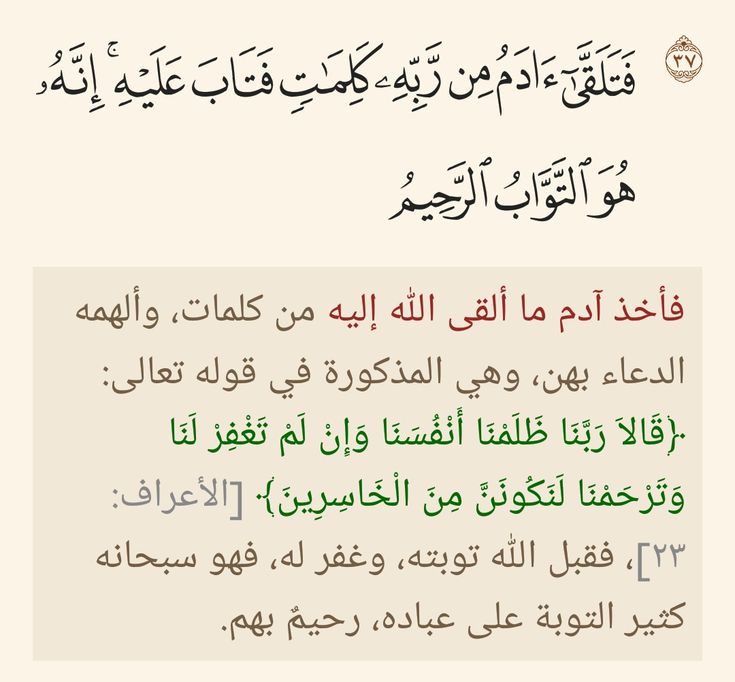 ٣٧ فَتَلَقَّىٰٓ ءَادَمُ مِن رَّبِّهِۦ كَلِمَٰتٖ فَتَابَ عَلَيۡهِۚ إِنَّهُۥ
هُوَ ٱلتَّوَّابُ ٱلرَّحِيمُ
فأخذ آدم ما ألقى الله إليه من كلمات، وألهمه
الدعاء بهن، وهي المذكورة في قوله تعالى:
﴿قَالاَ رَبَّنَا ظَلَمْنَا أَنْفُسَنَا وَإِنْ لَمْ تَغْفِرْ لَنَا
وَتَرْحَمْنَا لَنَكُونَنَّ مِنَ الْخَاسِرِينَ﴾ [الأعراف:
٢٣]، فقبل الله توبته، وغفر له، فهو سبحانه
كثير التوبة على عباده، رحيمٌ بهم.